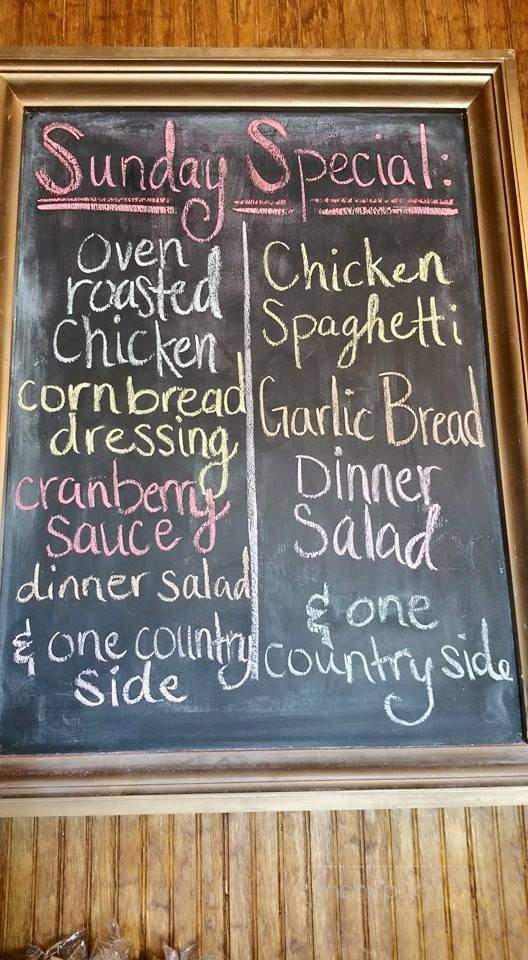 Sunday Special:
Oven
roasted
Chicken
cornbread
dressing
cranberry
sauce
dinner salad
& one country
side
Chicken
Spaghetti
Garlic Bread
Dinner
Salad
& one
country side